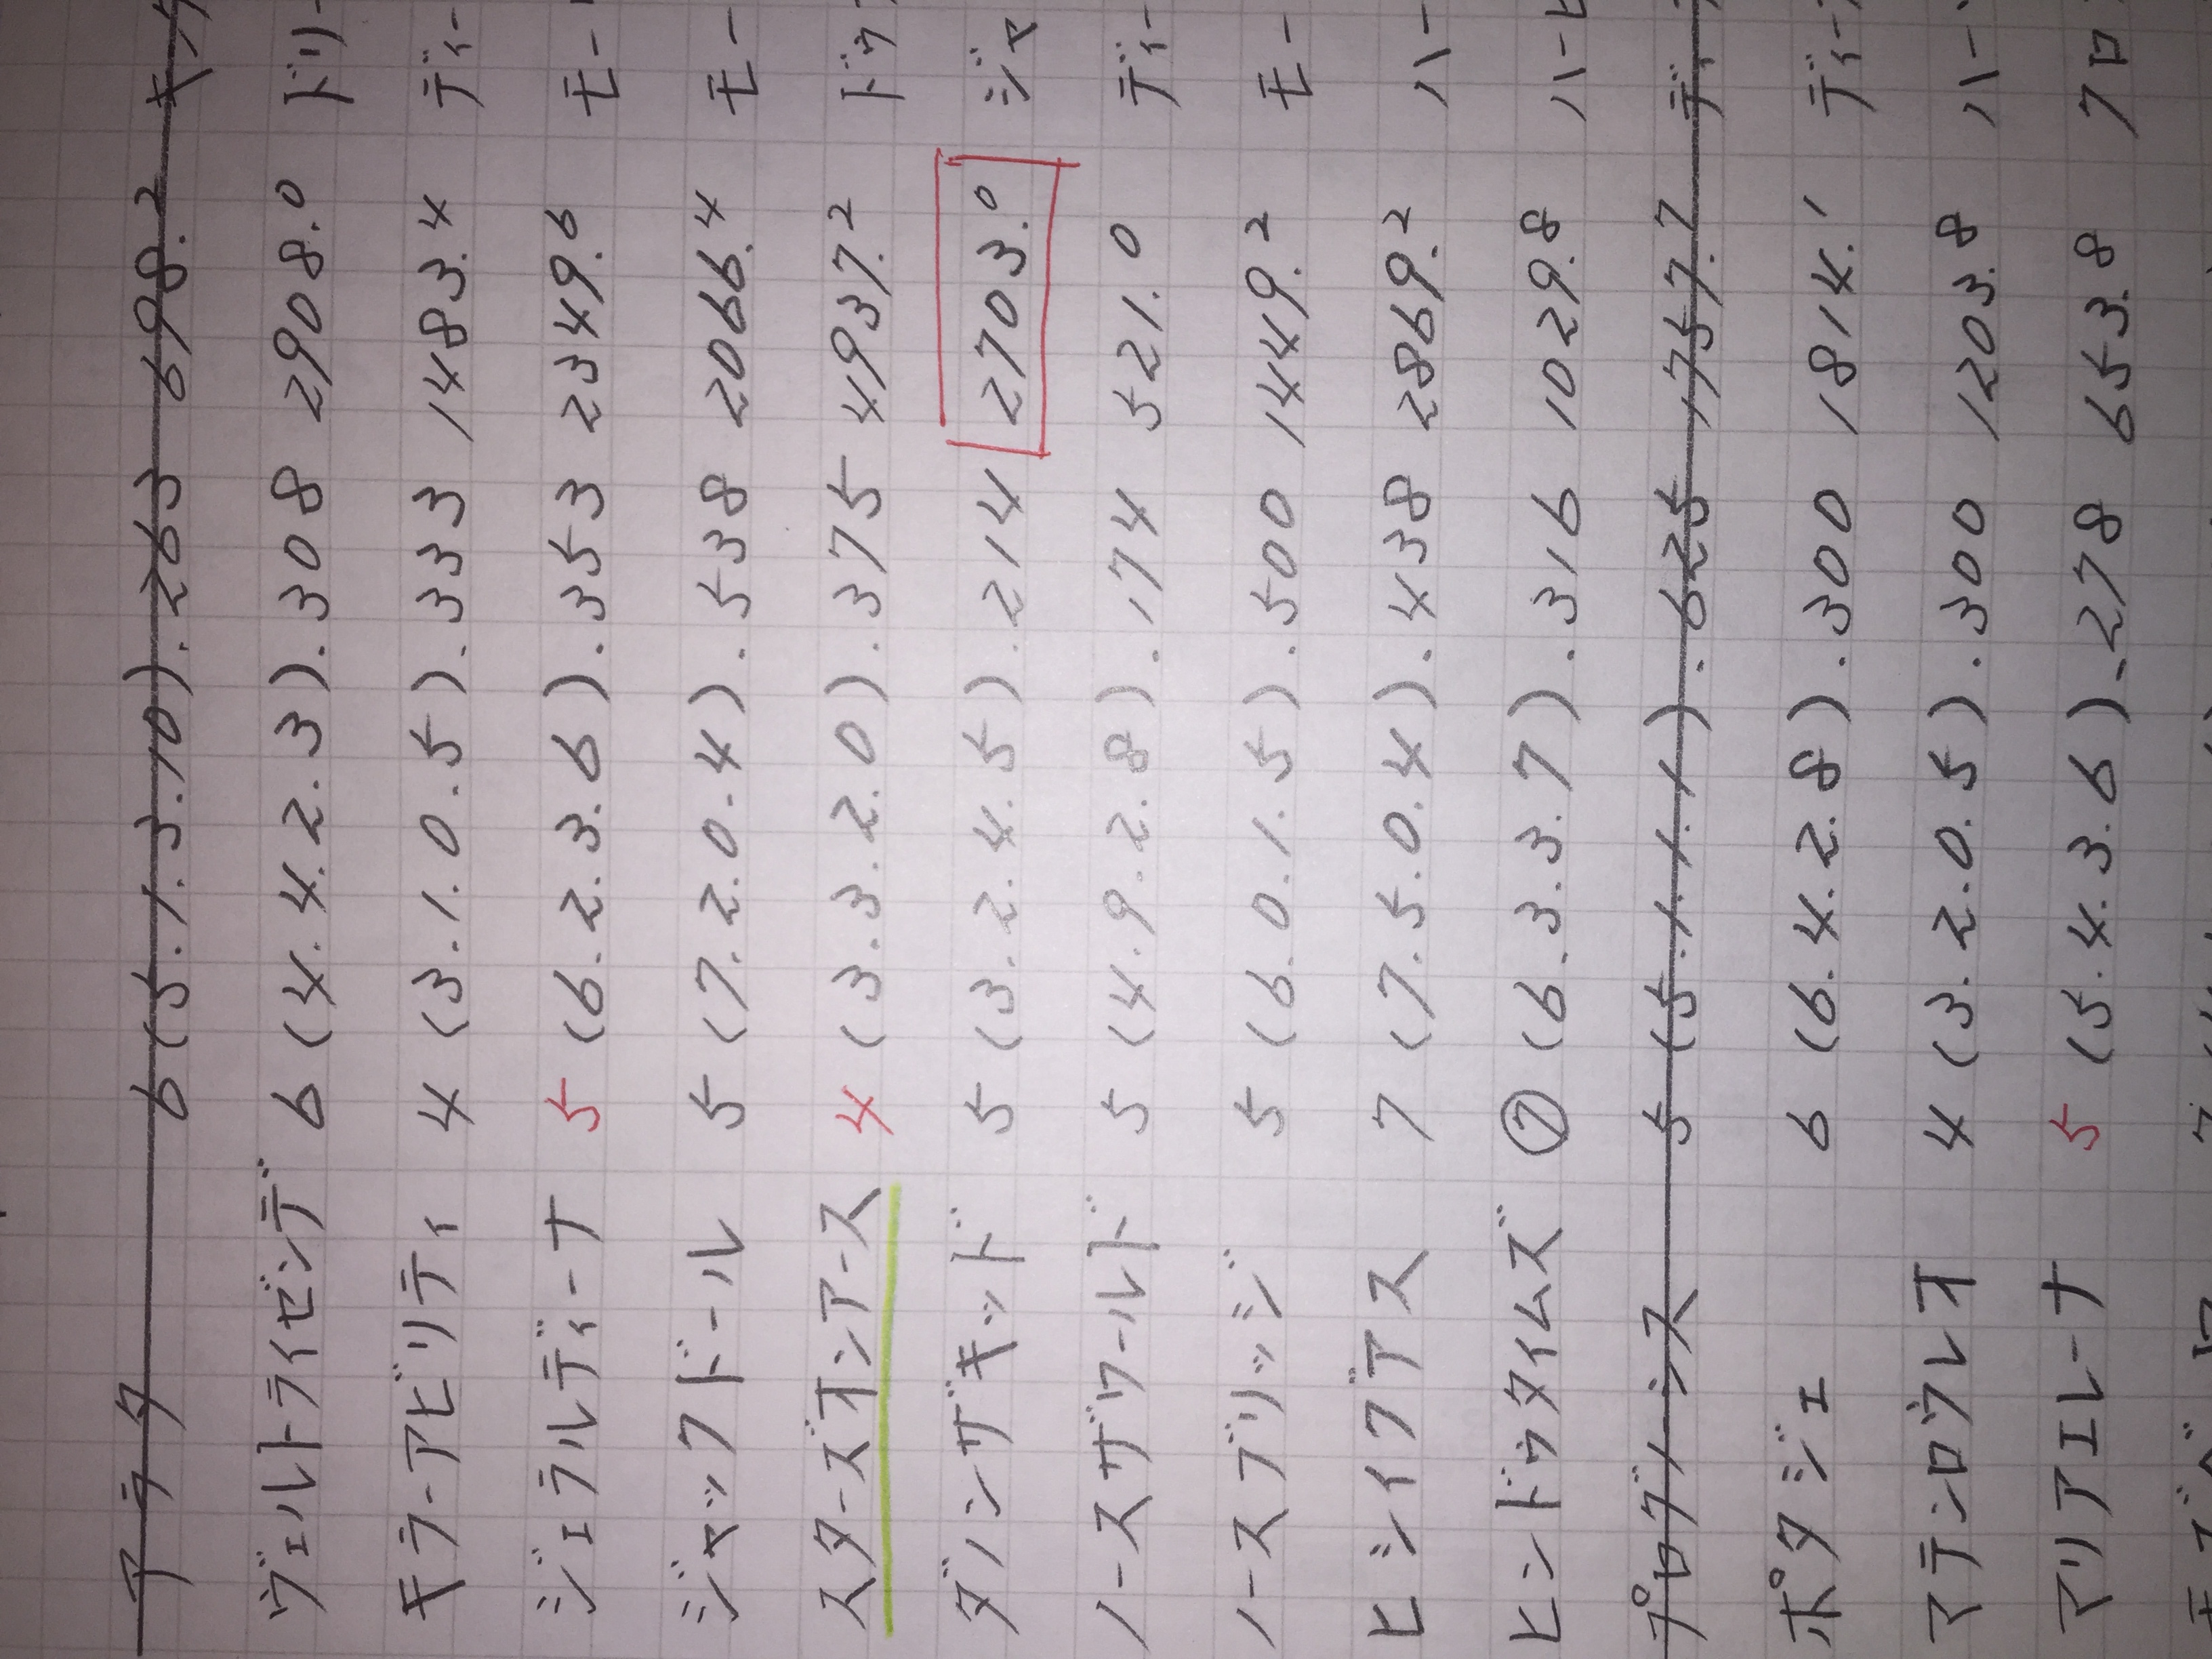 アラタ 6 (5.1.3.10).263 698.2 キング
ヴェルトライゼンデ 6 (4.4.2.3).308 2908.0 ドリー
キラーアビリティ 4 (3.1.0.5).333 1483.4 ディー
ジェラルディーナ 5 (6.2.3.6).353 2349.6 モー
ジャックドール 5 (7.2.0.4).538 2066.4 モー
スターズオンアース 4 (3.3.2.0).375 4937.2 ドゥ
ダノンザキッド 5 (3.2.4.5).214 2703.0 ジャ
ノースザワールド 5 (4.9.2.8).174 521.0 ディー
ノースブリッジ 5 (6.0.1.5).500 1449.2 モー
ヒシイグアス 7 (7.5.0.4).438 2869.2 ハー
ヒンドゥタイムズ ⑦ (6.3.3.7).316 1029.8 ハービ
プログノシス 5 (5.1.1.1).625 1757.7 ディー
ポタジェ 6 (6.4.2.8).300 1814.1 ディー
マテンロウレオ 4 (3.2.0.5).300 1203.8 ハー
マリアエレーナ 5 (5.4.3.6).278 653.8 クロ